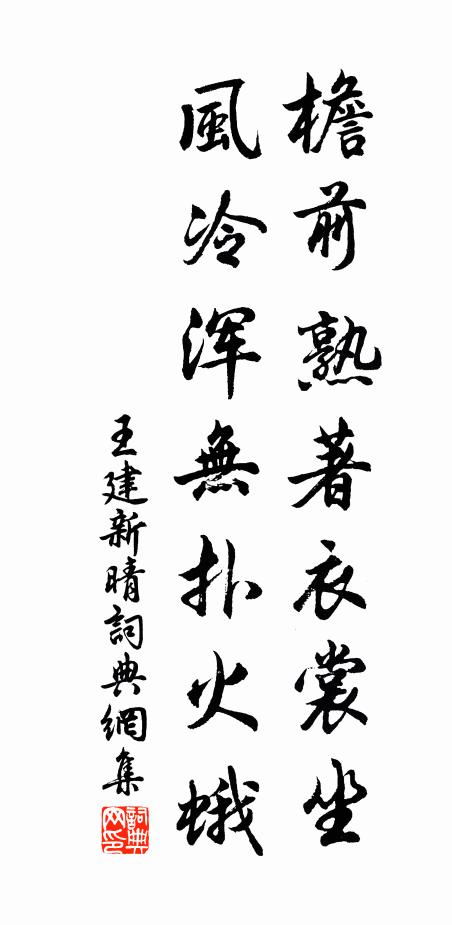 檐前熟著衣裳坐
風冷浑無扑火蛾
王建新晴詞典網集
詞典网印